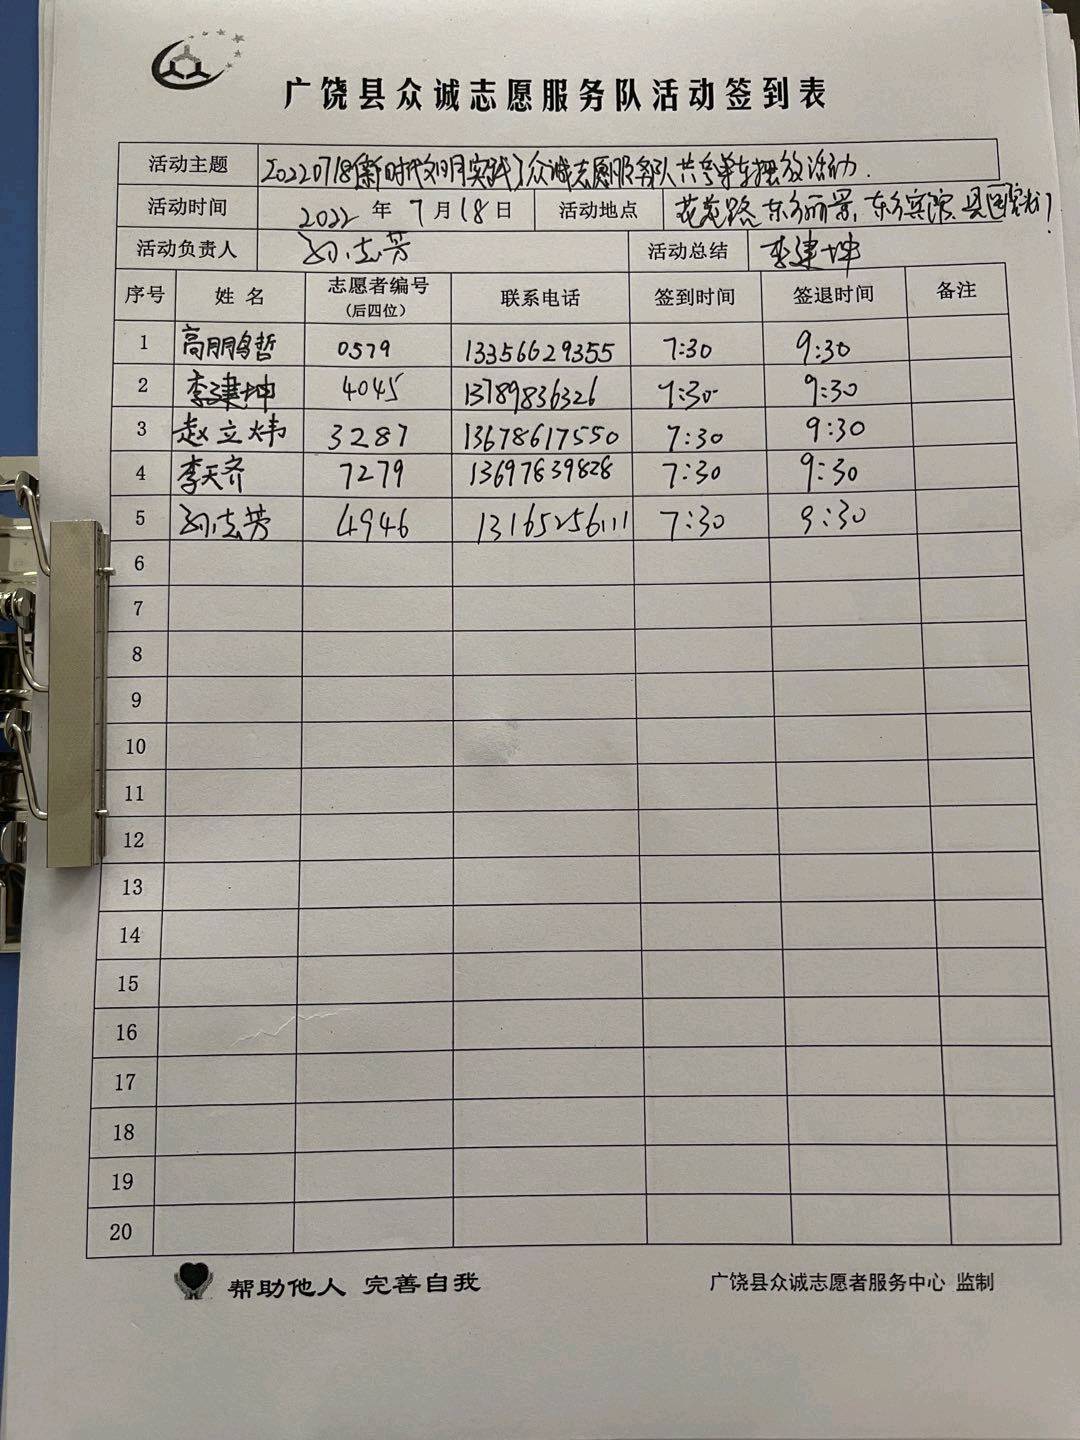 广饶县众诚志愿服务队活动签到表
活动主题 20220718(新时代文明实践)众诚志愿服务队共享单车摆放活动.
活动时间 2022 年 7 月 18 日 活动地点 花苑路、东方丽景、东方宾馆、县医院
活动负责人 孙志芳 活动总结 李建坤
序号 姓 名 志愿者编号 (后四位) 联系电话 签到时间 签退时间 备注
1 高鹏哲 0579 13356629355 7:30 9:30
2 李建坤 4045 13789836326 7:30 9:30
3 赵立炜 3287 13678617550 7:30 9:30
4 李天齐 7279 13697839828 7:30 9:30
5 孙志芳 4946 13165256111 7:30 9:30
6
7
8
9
10
11
12
13
14
15
16
17
18
19
20
帮助他人 完善自我 广饶县众诚志愿者服务中心 监制